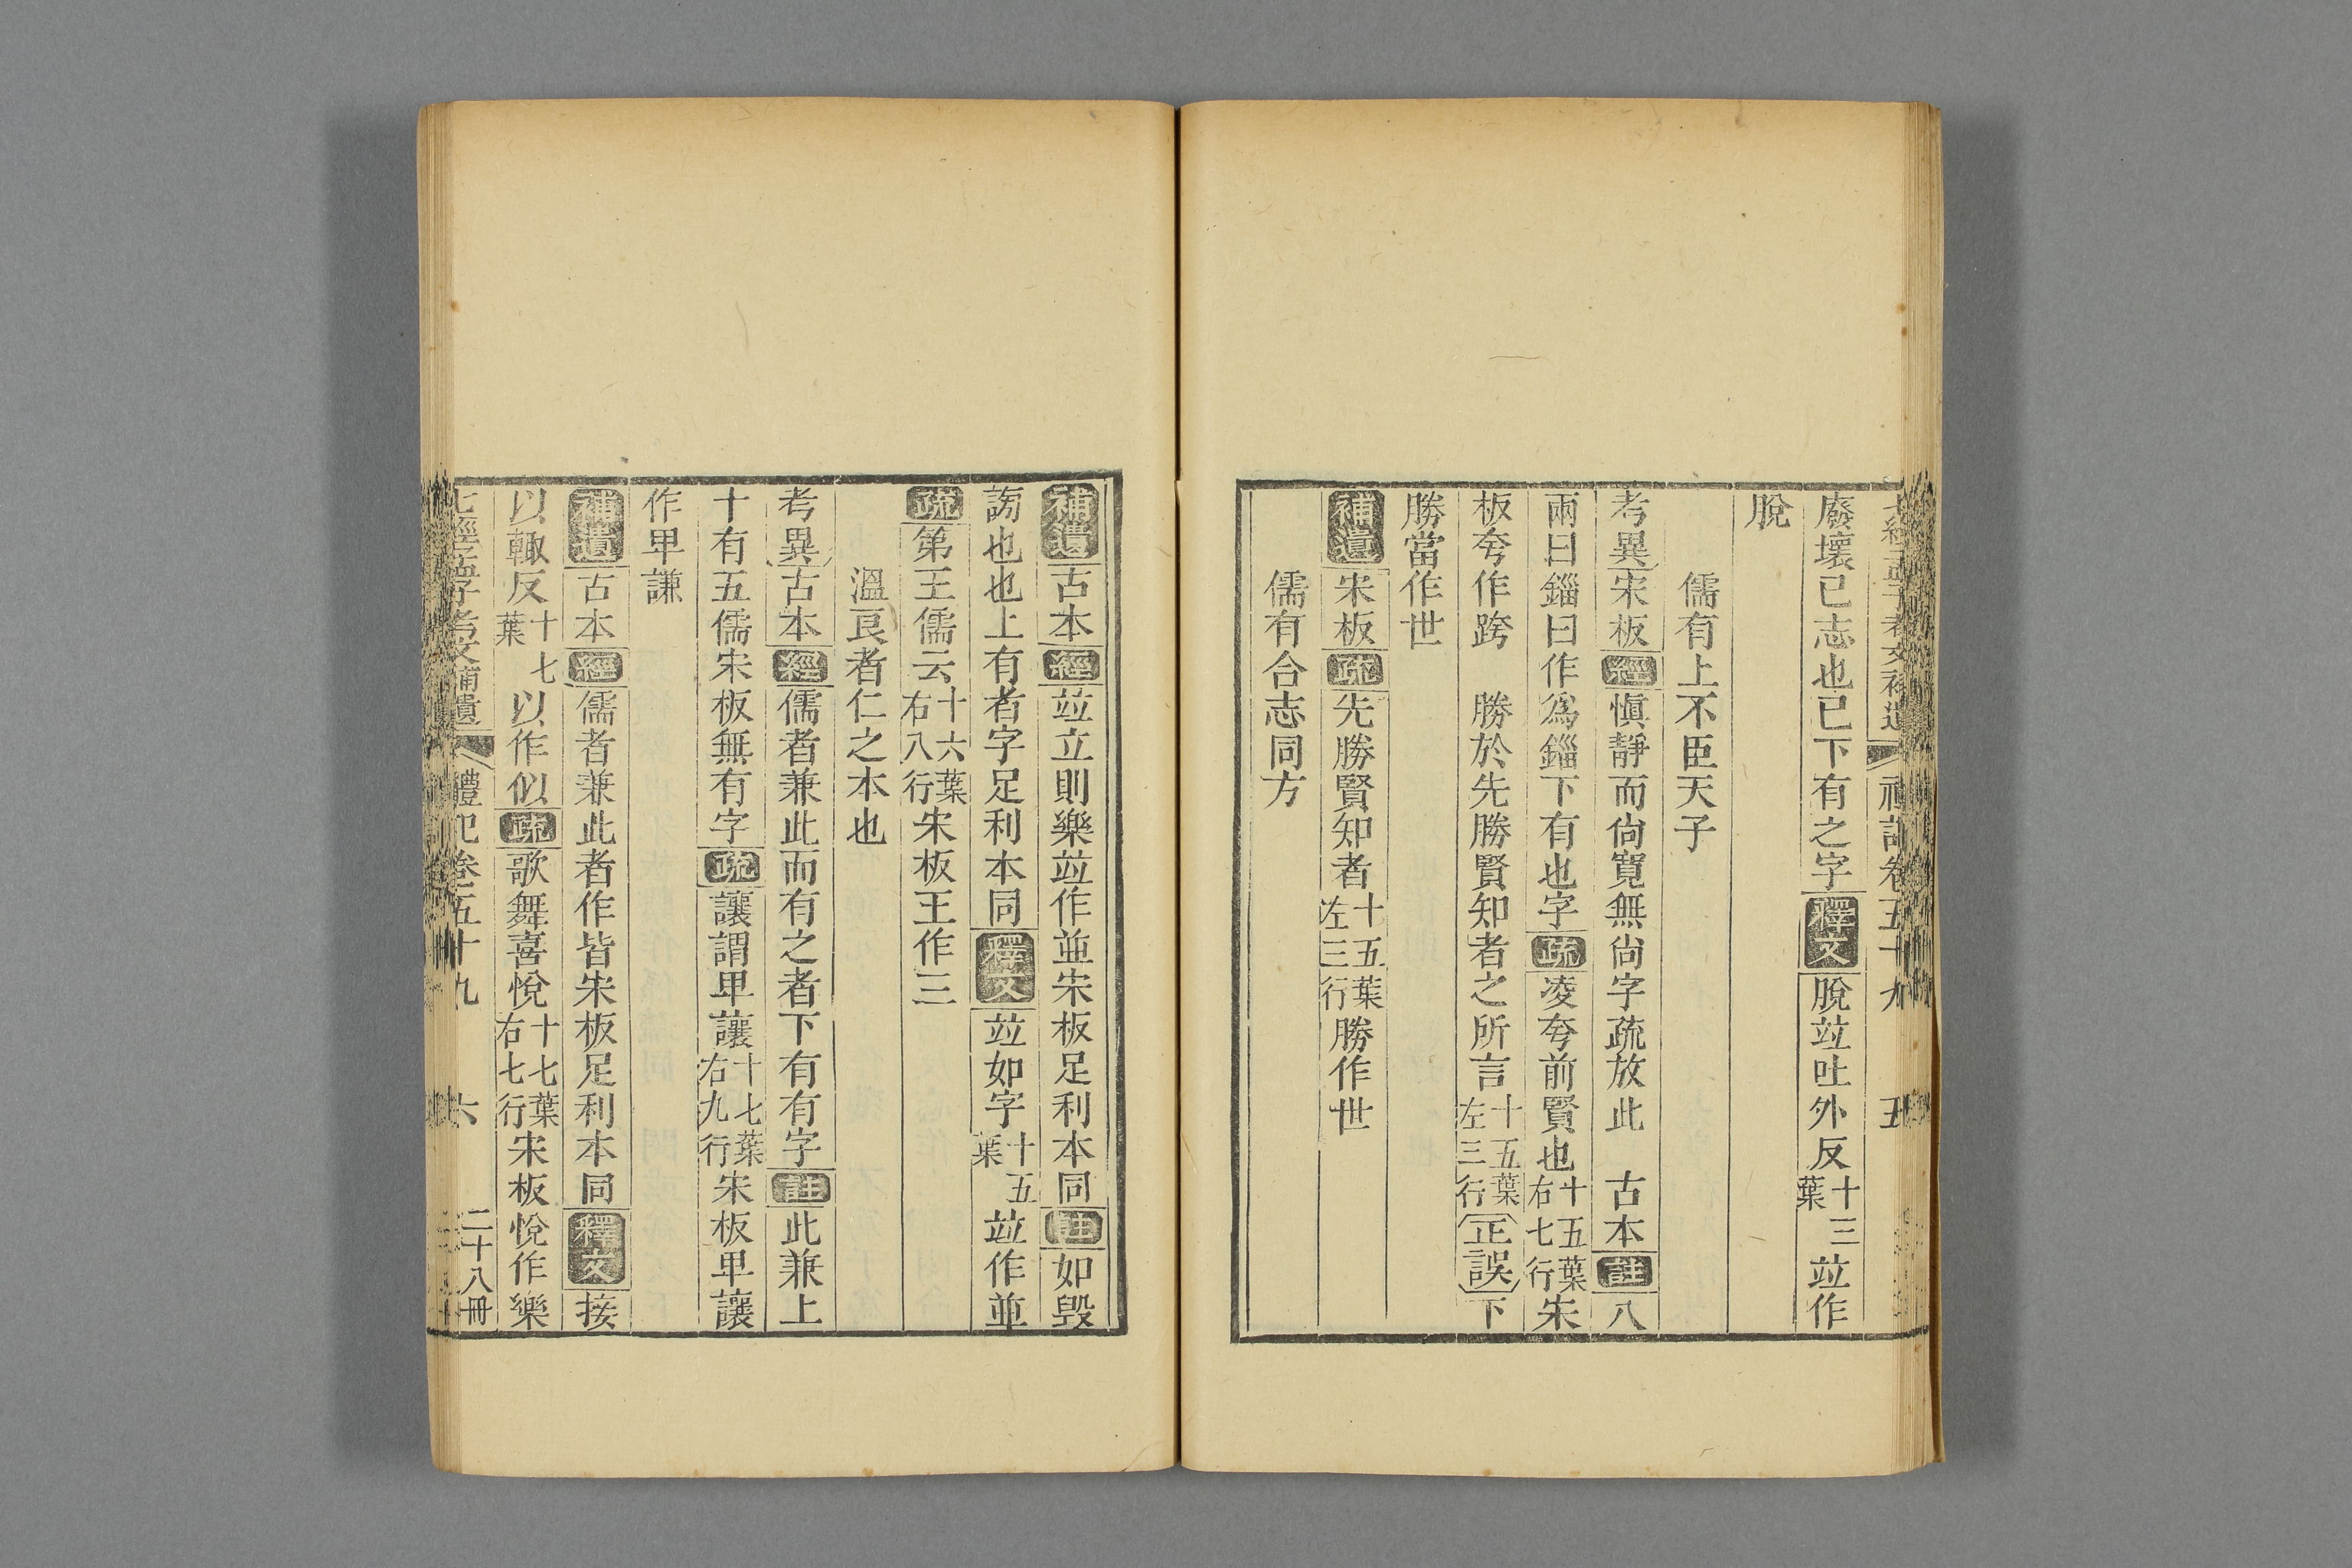 七經孟子考文補遺 禮記卷五十九 五
廢壞已志也已下有之字釋文脫竝吐外反十三葉竝作
脫
儒有上不臣天子
考異宋板經愼靜而尙寬無尙字疏放此 古本註八
兩曰錙曰作爲錙下有也字疏凌夸前賢也十五葉右七行宋
板夸作跨 勝於先勝賢知者之所言十五葉左三行正誤下
勝當作世
補遺宋板疏先勝賢知者十五葉左三行勝作世
儒有合志同方
補遺古本經竝立則樂竝作並宋板足利本同註如毀
謗也也上有者字足利本同釋文竝如字十五葉竝作並
疏第王儒云十六葉右八行宋板王作三
溫良者仁之本也
考異古本經儒者兼此而有之者下有有字註此兼上
十有五儒宋板無有字疏讓謂卑讓十七葉右九行宋板卑讓
作卑謙
補遺古本經儒者兼此者作皆宋板足利本同釋文接
以輙反十七葉以作似疏歌舞喜悅十七葉右七行宋板悅作樂
七經孟子考文補遺 禮記卷五十九 六 二十八冊